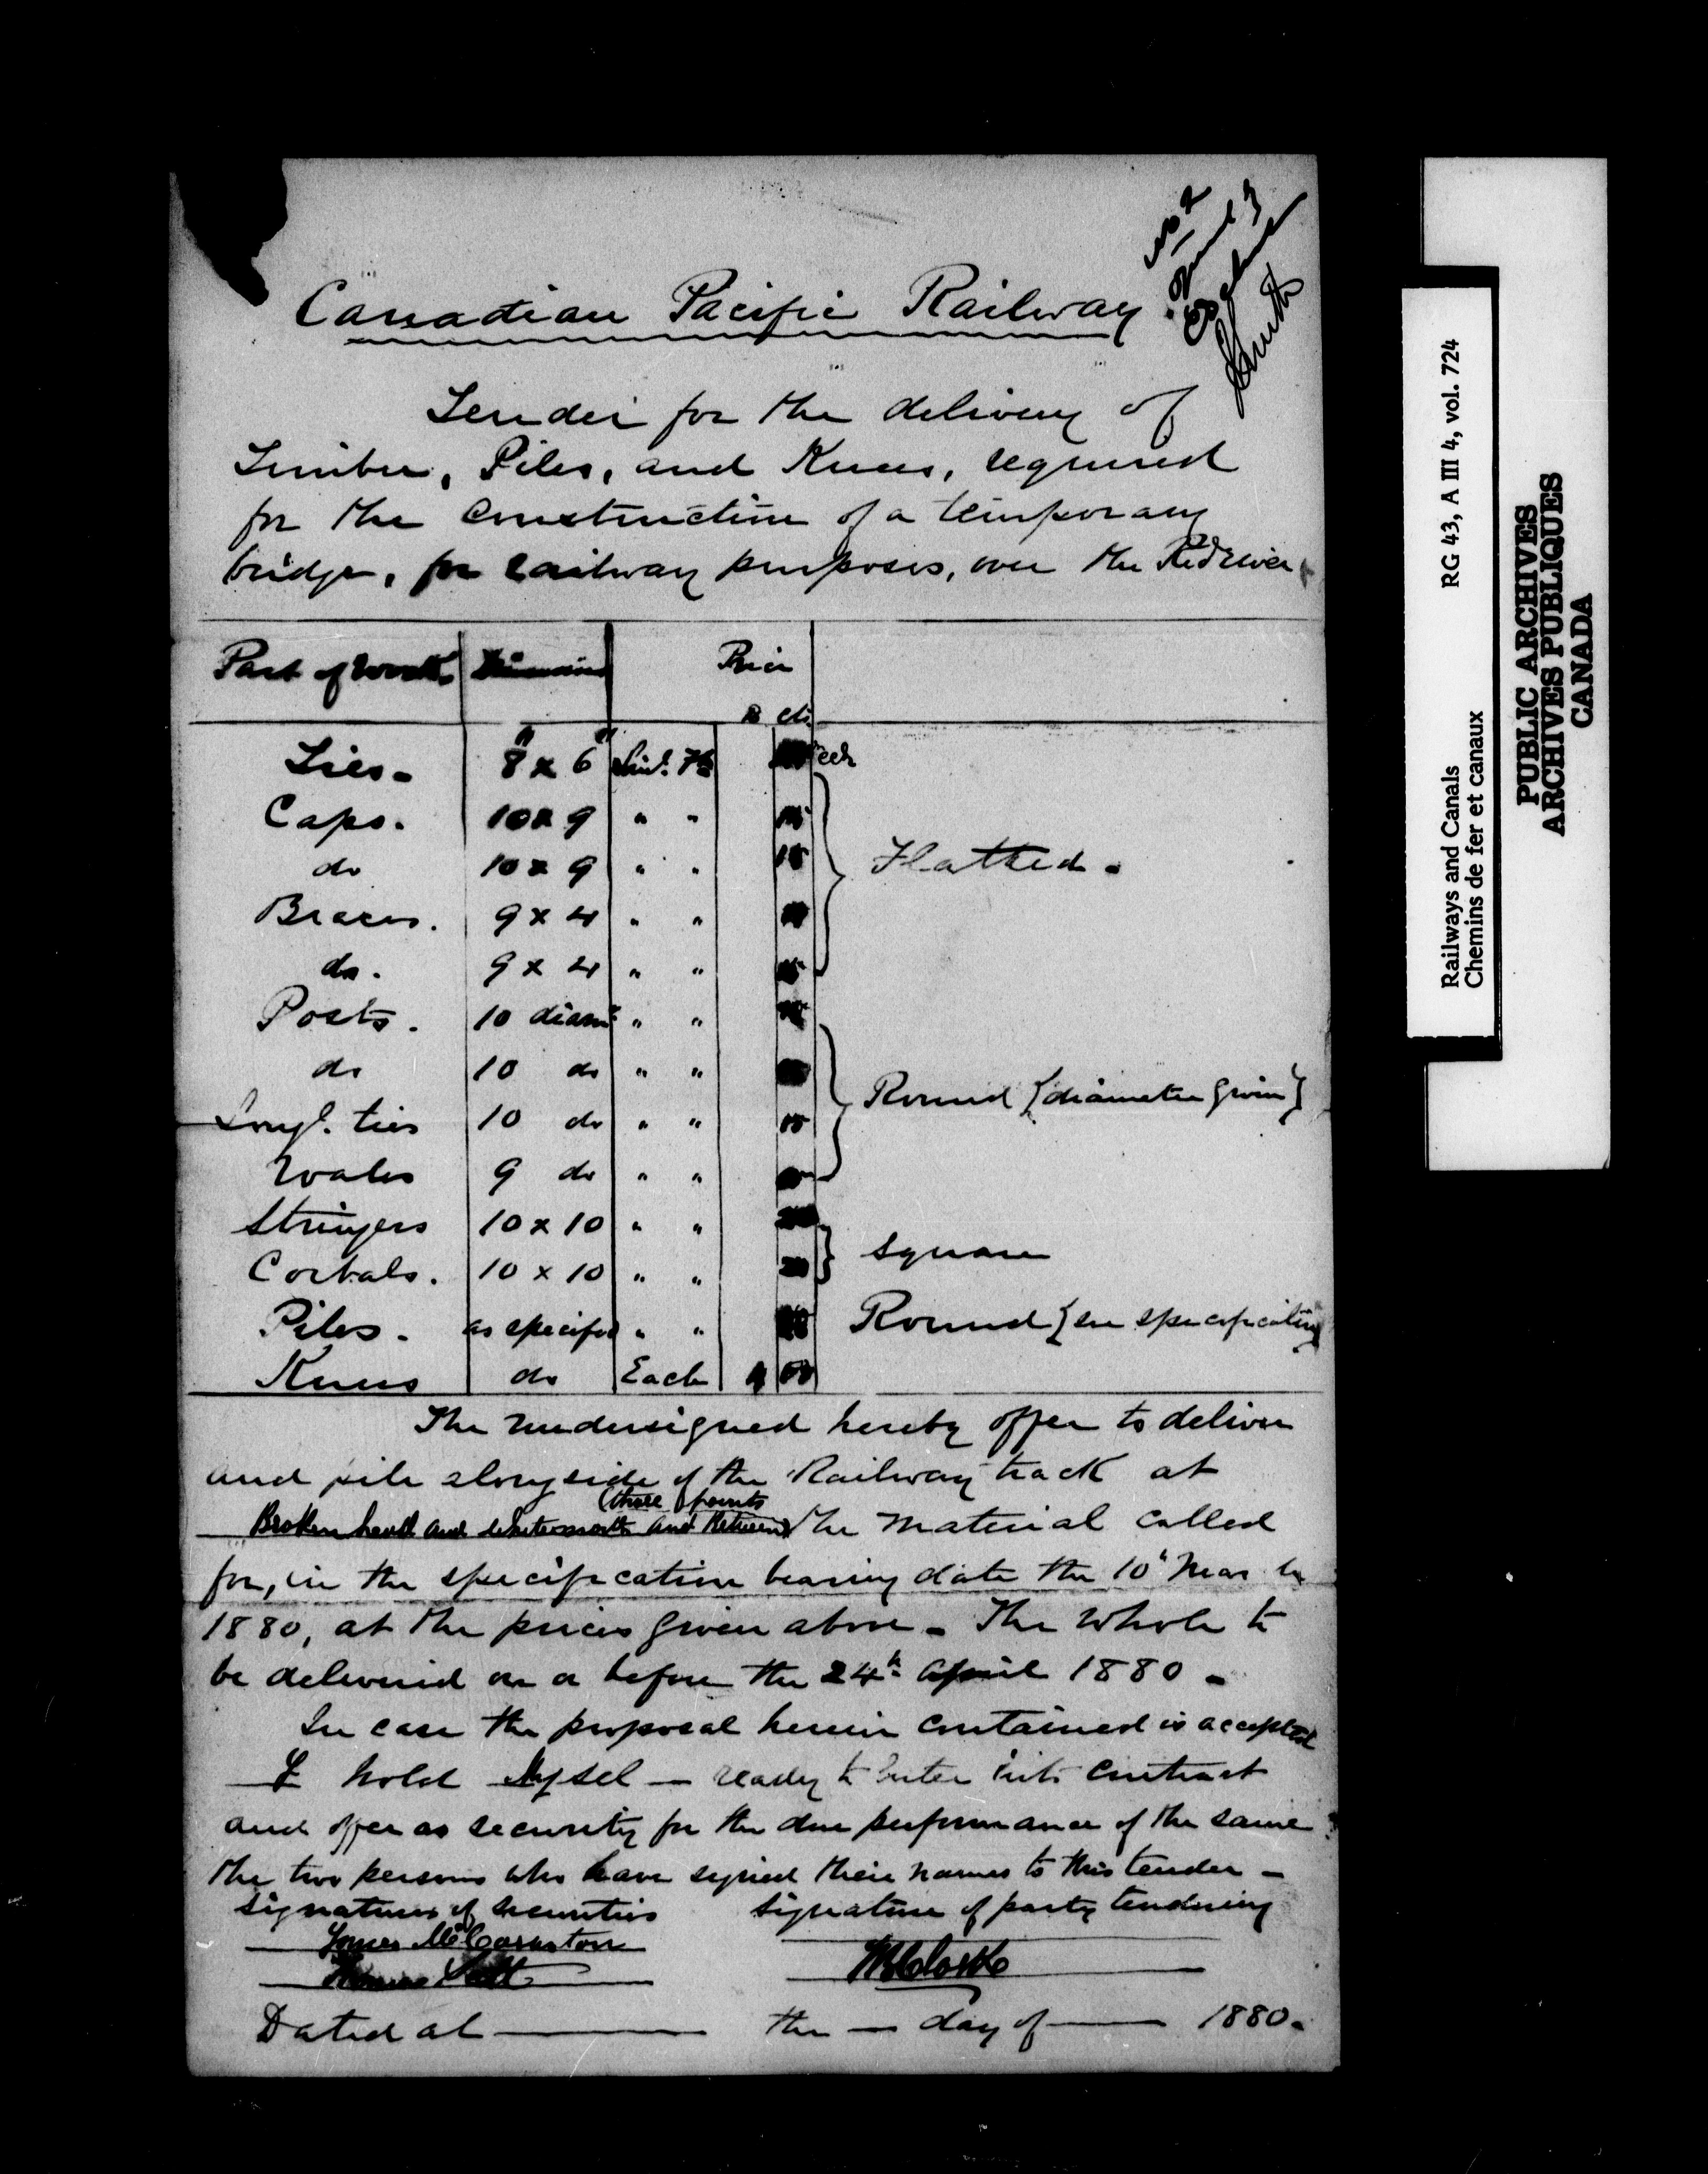 No 2
Canadian Pacific Railway
Tender for the delivery of
Timber, Piles, and Knees, required
for the Construction of a temporary
bridge, for railway purposes, over the Red River
Part of Work Dimensions Price
$ cts
Ties - 8" x 6" Lin.l Ft each
Caps. 10 x 9 " " 15
do 10 x 9 " " 15
Flatted -
Braces. 9 x 4 " "
do. 9 x 4 " " 15
Posts. 10 diamr " "
do 10 do " "
Round {diameter given}
Longl. ties 10 do " " 15
Wales 9 do " "
Stringers 10 x 10 " "
square
Corbals. 10 x 10 " " 20
Piles. as specified " " Round {see specification}
Knees do Each 00
The undersigned hereby offer to deliver
and pile alongside of the Railway track at
(three points
Broken head and Whitemouth and Between) the material called
for, in the specification bearing date the 10th March
1880, at the prices given above - The whole to
be delivered on or before the 24th April 1880 -
In case the proposal herein contained is accepted
I hold Mysel - ready to enter into contract
and offer as security for the due performance of the same
the two persons who have signed their names to this tender -
Signatures of Securities Signature of party tendering
James
Thomas
Dated at the day of 1880.
Railways and Canals RG 43, A III 4, vol. 724
Chemins de fer et canaux
PUBLIC ARCHIVES
ARCHIVES PUBLIQUES
CANADA